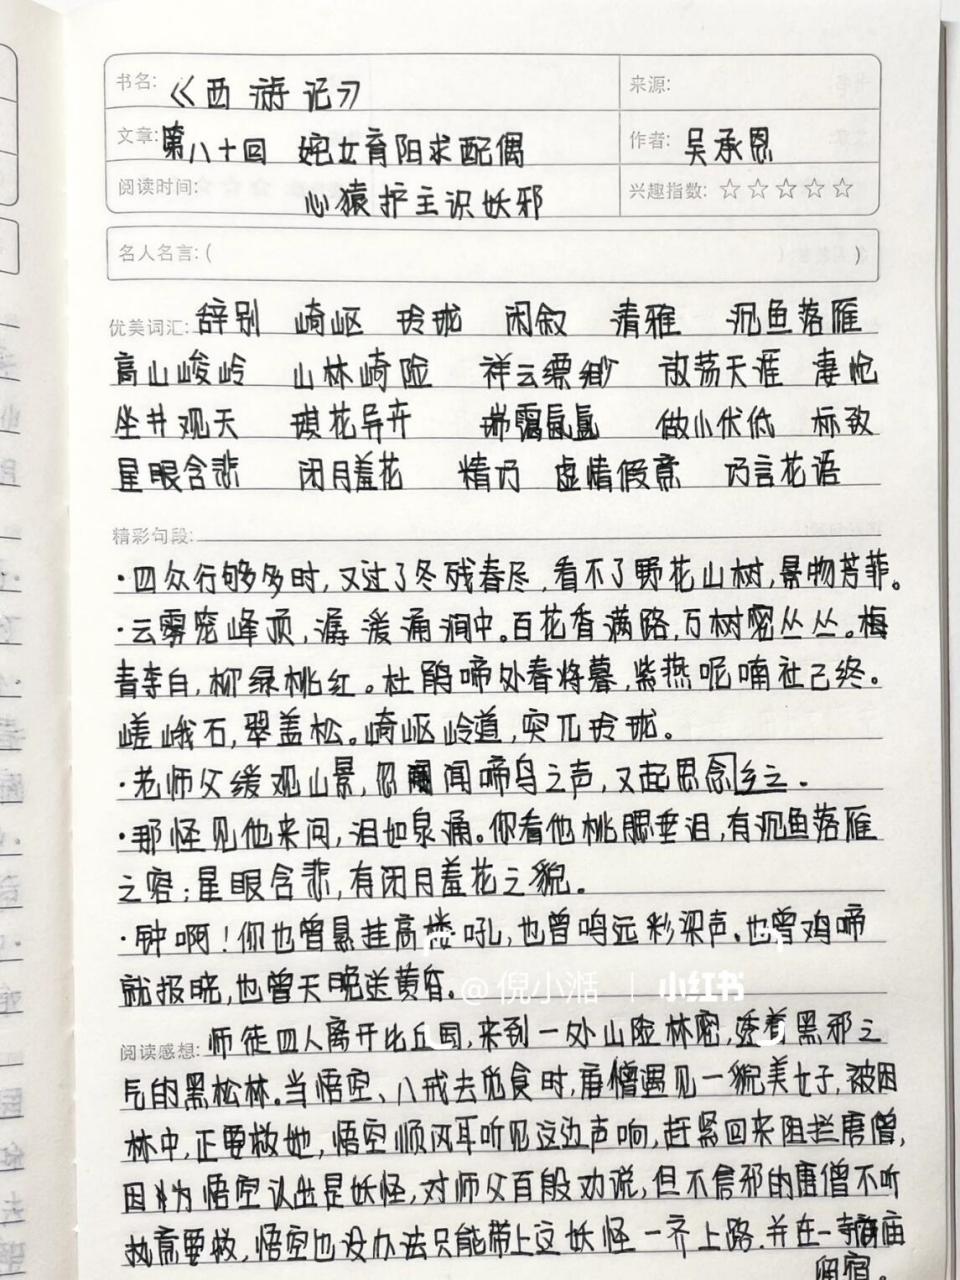 书名:《西游记》
来源:
文章:第八十回 姹女育阳求配偶
作者:吴承恩
阅读时间: 心猿护主识妖邪
兴趣指数:☆☆☆☆☆
名人名言:( )
优美词汇:辞别 崎岖 玲珑 闲叙 清雅 沉鱼落雁
高山峻岭 山林崎险 祥云缥缈 放荡天涯 凄怆
坐井观天 琪花异卉 瑞霭氤氲 做小伏低 标致
星眼含悲 闭月羞花 精巧 虚情假意 巧言花语
精彩句段:
·四众行够多时,又过了冬残春尽,看不了野花山树,景物芳菲。
·云雾笼峰顶,潺湲涌涧中。百花香满路,万树密丛丛。梅
青李白,柳绿桃红。杜鹃啼处春将暮,紫燕呢喃社已终。
嵯峨石,翠盖松。崎岖岭道,突兀玲珑。
·老师父缓观山景,忽闻啼鸟之声,又起思念乡之.
·那怪见他来问,泪如泉涌。你看他桃腮垂泪,有沉鱼落雁
之容;星眼含悲,有闭月羞花之貌。
·钟啊!你也曾悬挂高楼吼,也曾鸣远彩梁声。也曾鸡啼
就报晓,也曾天晚送黄昏。
@倪小湉 | 小红书
阅读感想:师徒四人离开比丘国,来到一处山险林密,透着黑邪之
气的黑松林。当悟空、八戒去觅食时,唐僧遇见一貌美女子,被困
林中,正要救她,悟空顺风耳听见这边声响,赶紧回来阻拦唐僧,
因为悟空认出是妖怪,对师父百般劝说,但不信邪的唐僧不听
执意要救,悟空也没办法只能带上这妖怪一齐上路.并在一寺庙
留宿。